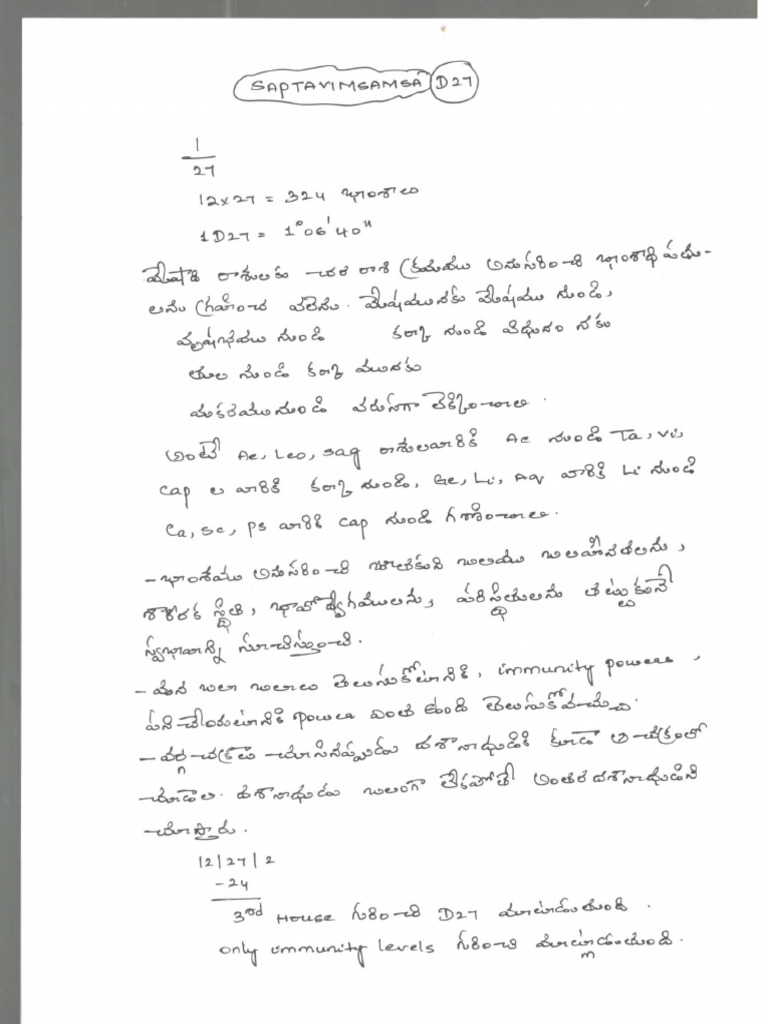 SAPTAVIMSAMSA D27
1
27
12x27 = 324 భాంశాలు
1D27 = 1° 06' 40"
మేషాది రాశులకు చర రాశి క్రమము అనుసరించి భాంశాధిపతు-
లను గ్రహించ వలెను. మేషమునకు మేషము నుండి,
వృషభము నుండి కర్కా నుండి మిధునం నకు
తుల నుండి కర్కా మునకు
మకరమునుండి వరుసగా లెక్కించాలి.
అంటే Ae, Leo, sag రాశులవారికి Ae నుండి Ta, vi,
cap ల వారికి కర్కా నుండి, Ge, Li, Aq వారికి Li నుండి
Ca, sc, ps వారికి cap నుండి గణించాలి.
- భాంశము అనుసరించి జాతకుని బలము బలహీనతలను,
శారీరక స్థితి, భావోద్వేగములను, పరిస్థితులను తట్టుకునే
స్వభావాన్ని సూచిస్తుంది.
- మన బలా బలాలు తెలుసుకోటానికి, immunity powers,
పని చేయటానికి power ఎంత ఉంది తెలుసుకోవచ్చు.
- వర్గ చక్రాలు చూసినప్పుడు దశానాధుడికి కూడా ఆ చక్రంలో
చూడాలి. దశానాధుడు బలంగా లేకపోతే అంతర దశానాధుడిని
చూస్తారు.
12 | 27 | 2
-24
3rd House గురించి D27 మాట్లాడుతుంది.
only immunity levels గురించి మాట్లాడుతుంది.